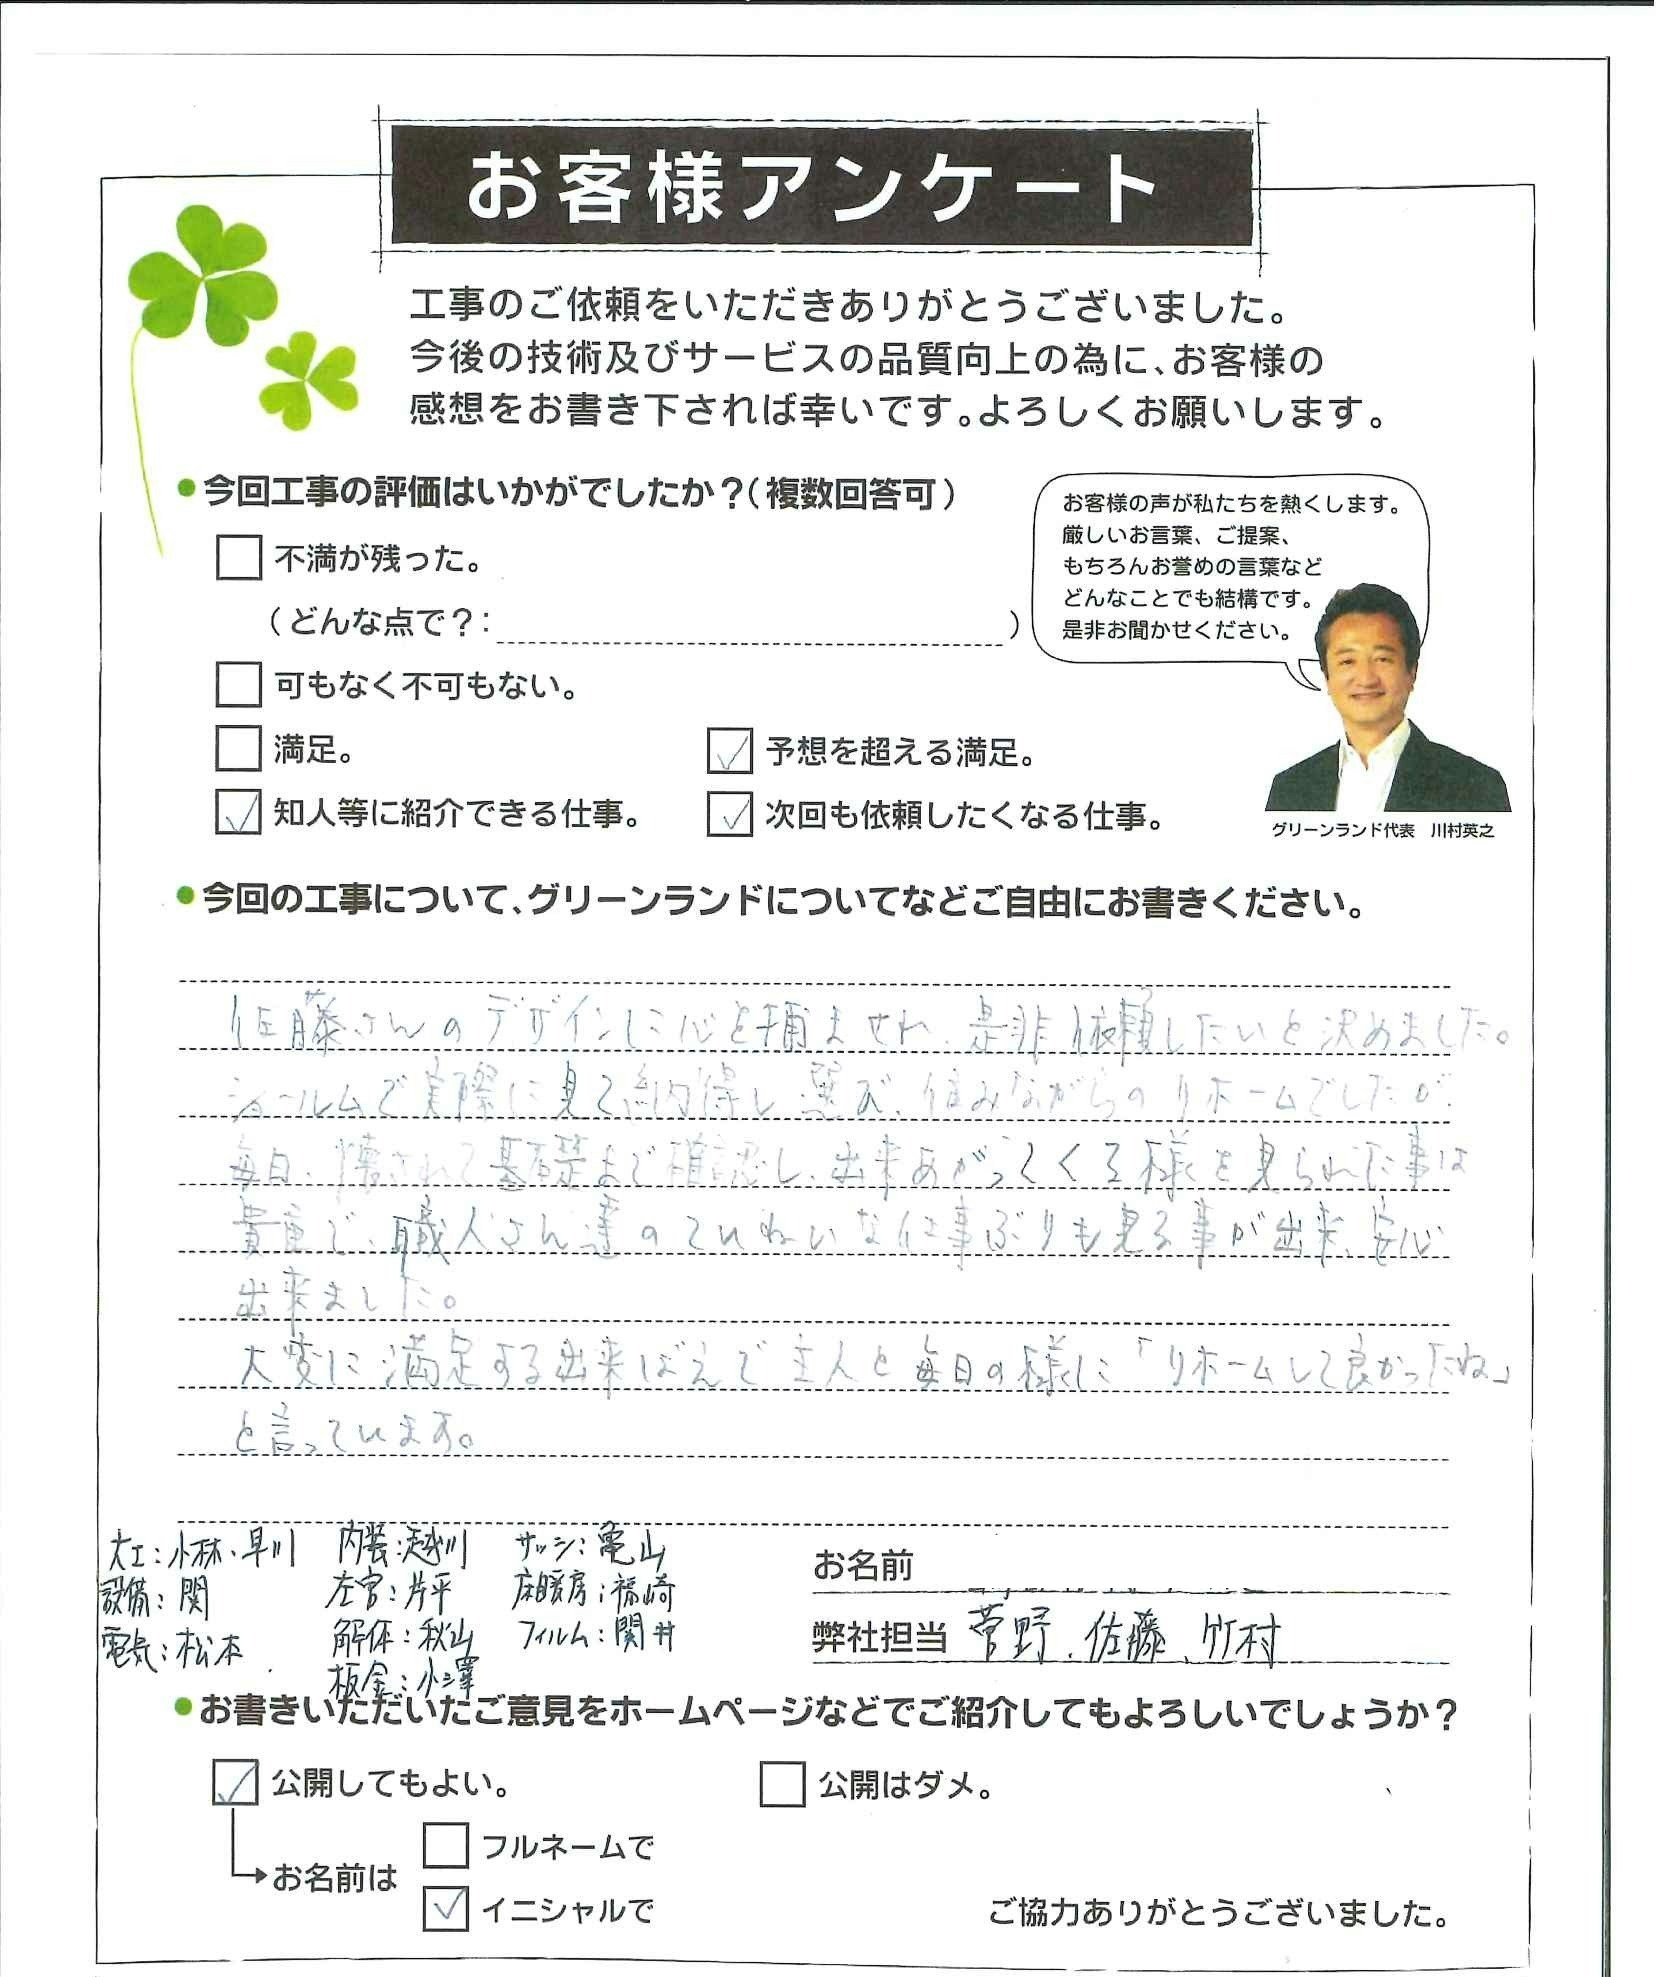 お客様アンケート
工事のご依頼をいただきありがとうございました。
今後の技術及びサービスの品質向上の為に、お客様の
感想をお書き下されば幸いです。よろしくお願いします。
●今回工事の評価はいかがでしたか?(複数回答可)
不満が残った。
(どんな点で?: )
可もなく不可もない。
満足。
予想を超える満足。
知人等に紹介できる仕事。
次回も依頼したくなる仕事。
お客様の声が私たちを熱くします。
厳しいお言葉、ご提案、
もちろんお誉めの言葉など
どんなことでも結構です。
是非お聞かせください。
グリーンランド代表 川村英之
●今回の工事について、グリーンランドについてなどご自由にお書きください。
佐藤さんのデザインに心を掴ませれ、是非依頼したいと決めました。
ショールムで実際に見て納得し選び、住みながらのリホームでしたが、
毎日、壊されて基礎まで確認し、出来あがってくる様を見られた事は
貴重で、職人さん達のていねいな仕事ぶりも見る事が出来、安心
出来ました。
大変に満足する出来ばえで主人と毎日の様に「リホームして良かったね」
と言っています。
大工:小林、早川
設備:関
電気:松本
内装:越川
左官:片平
解体:秋山
板金:小澤
サッシ:亀山
床暖房:福崎
フィルム:関井
お名前
弊社担当 菅野、佐藤、竹村
●お書きいただいたご意見をホームページなどでご紹介してもよろしいでしょうか?
公開してもよい。
公開はダメ。
お名前は
フルネームで
イニシャルで
ご協力ありがとうございました。